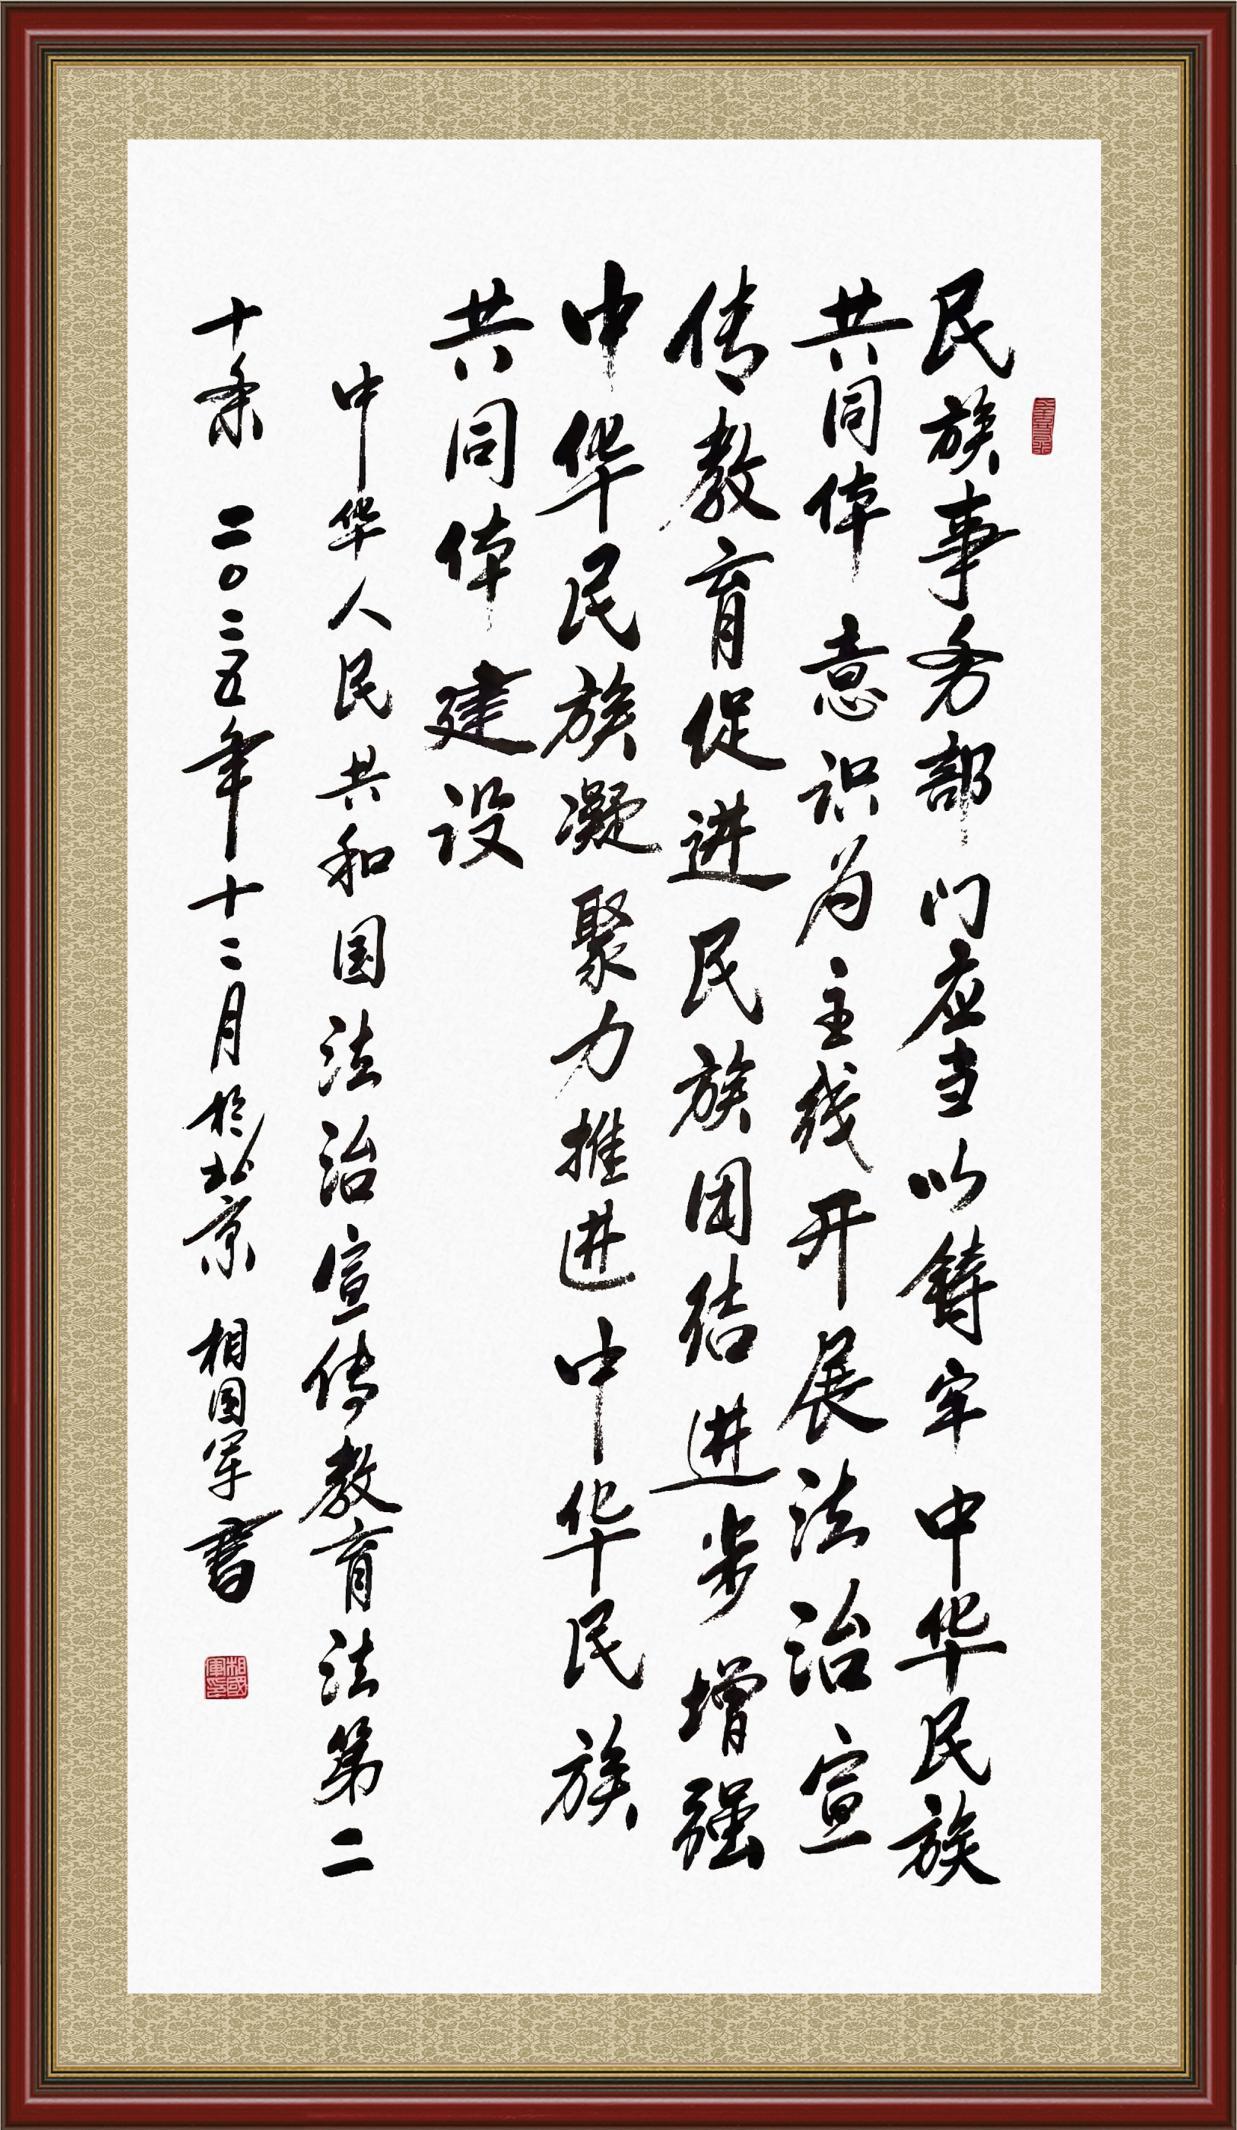 民族事务部门应当以铸牢中华民族
共同体意识为主线开展法治宣
传教育促进民族团结进步增强
中华民族凝聚力推进中华民族
共同体建设
中华人民共和国法治宣传教育法第二
十条 二〇二五年十二月於北京 相国军书
相國軍印